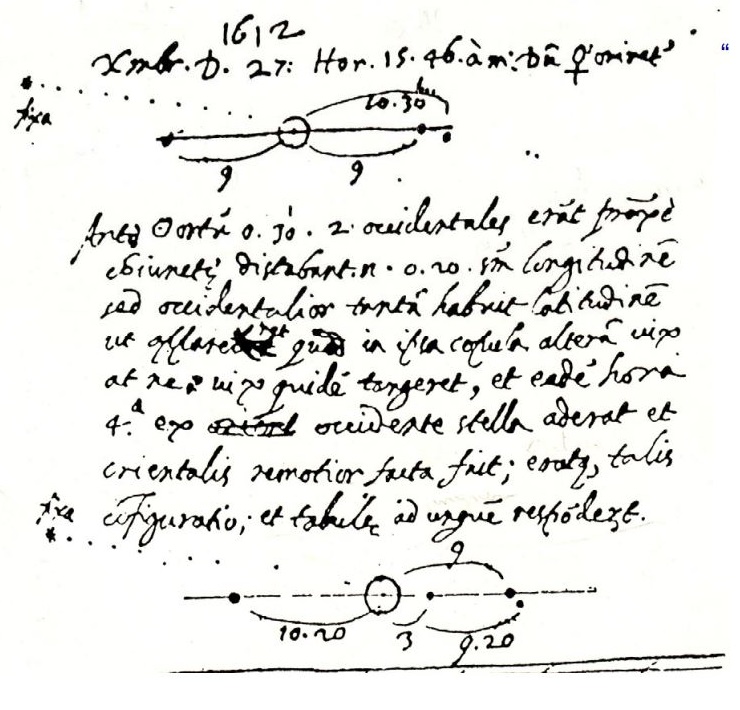 1612
Xmbr. D. 27: Hor. 15. 46. à m: Dũ ♀ oriret'
fixa
10.30
9 9
Antè ☉ ortũ 0. 30. 2. occidentales erãt propè
distabant. n. 0. 20. longitudinẽ
sed occidentalior tantã habuit latitudinẽ
ut in ipsa copula alterã vix
at ne vix quidẽ tangeret, et eadẽ hora
4.ª ex occidente stella aderat et
orientalis remotior facta fuit; eratq, talis
cõfiguratio; et tabulę ad unguẽ respõdeẽt.
fixa
9
10.20 3 9.20
“